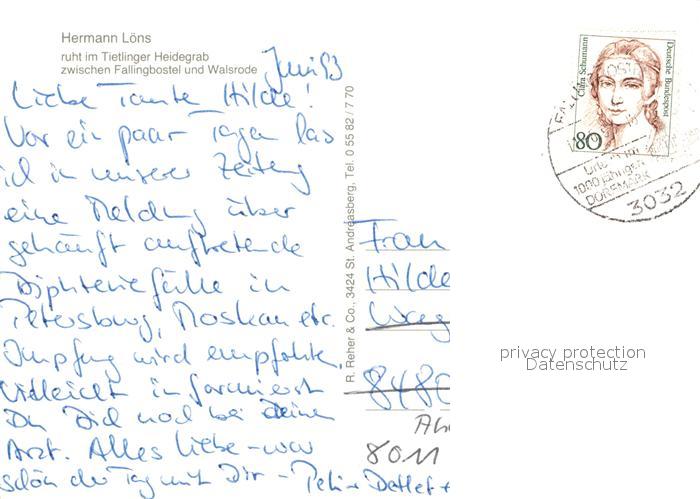 Hermann Löns
ruht im Tietlinger Heidegrab
zwischen Fallingbostel und Walsrode
Juni 93
Liebe Tante Hilde!
Vor ein paar Tagen las
ich in unserer Zeitung
eine Meldung über
gehäuft auftretende
Diphteriefälle in
Petersburg, Moskau etc.
Impfung wird empfohlen,
vielleicht informierst
Du Dich mal bei deinem
Arzt. Alles Liebe - war
schön der Tag mit Dir - Detlef +
R. Reher & Co., 3424 St. Andreasberg, Tel. 0 55 82 / 7 70
Frau
Hilde
8480
8011
Clara Schumann
Deutsche Bundespost
80
1000jährigen
DORFMARK
3032
privacy protection
Datenschutz